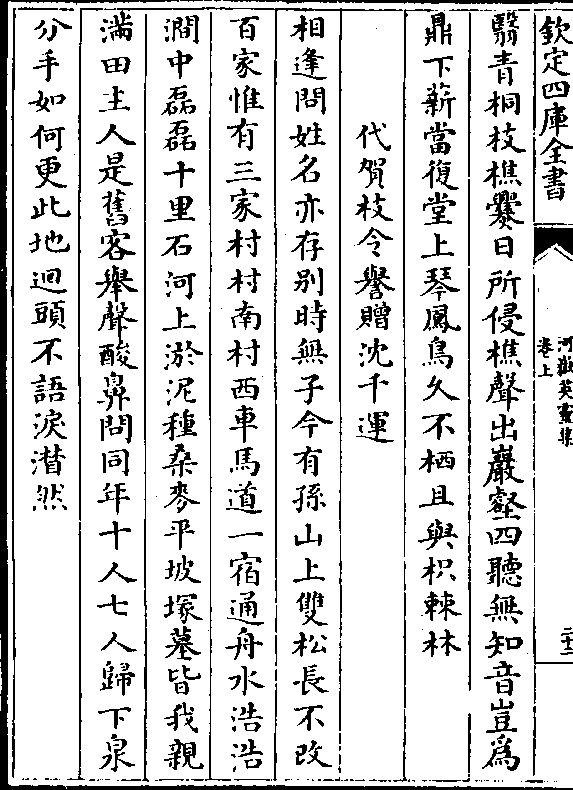 欽定四庫全書
河嶽英靈集
卷上
二十二
翳青桐枝樵爨日所侵樵聲出巖壑四聽無知音豈為
鼎下薪當復堂上琴鳳鳥久不栖且與枳棘林
代賀枝令譽贈沈千運
相逢問姓名亦存别時無子今有孫山上雙松長不改
百家惟有三家村村南村西車馬道一宿通舟水浩浩
澗中磊磊十里石河上淤泥種桑麥平坡塚墓皆我親
滿田主人是舊客舉聲酸鼻問同年十人七人歸下泉
分手如何更此地迴頭不語淚潸然